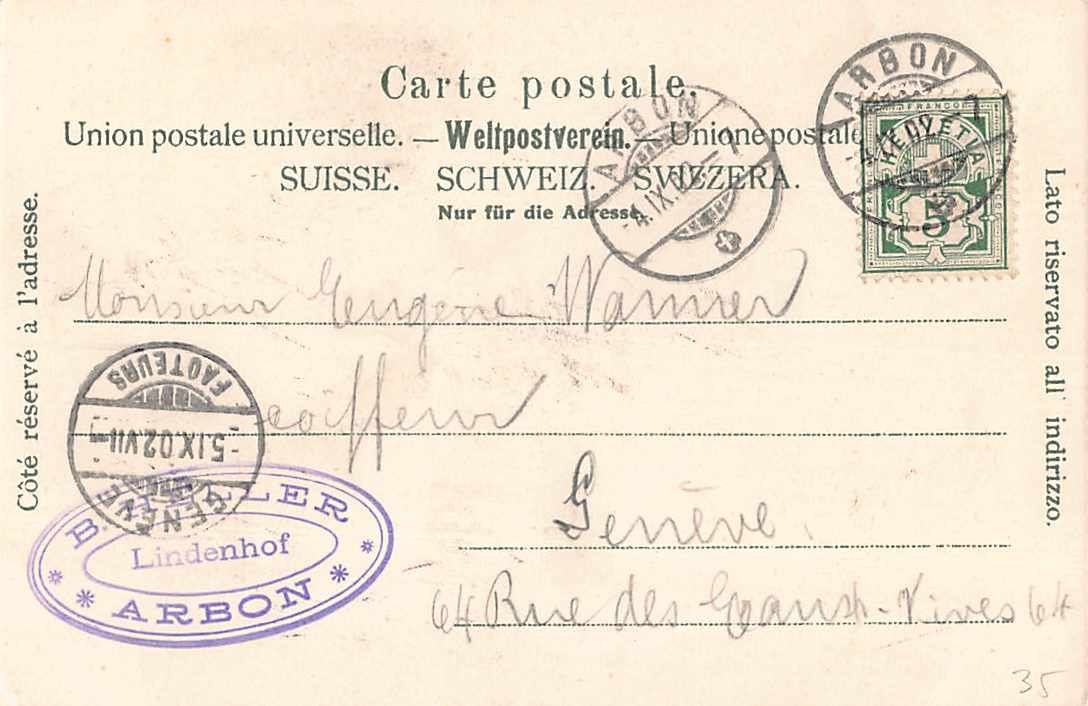 Carte postale.
Union postale universelle. — Weltpostverein. — Unione postale
SUISSE. SCHWEIZ. SVIZZERA.
Nur für die Adresse.
Côté réservé à l'adresse.
Lato riservato all' indirizzo.
ARBON
-4.IX.02.-7
ARBON
7
FRANCO
HELVETIA
5
Monsieur Eugène Wanner
coiffeur
Genève.
64 Rue des Eaux-Vives 64
GENÈVE
-5.IX.02.VII-
FACTEURS
Lindenhof
ARBON
35